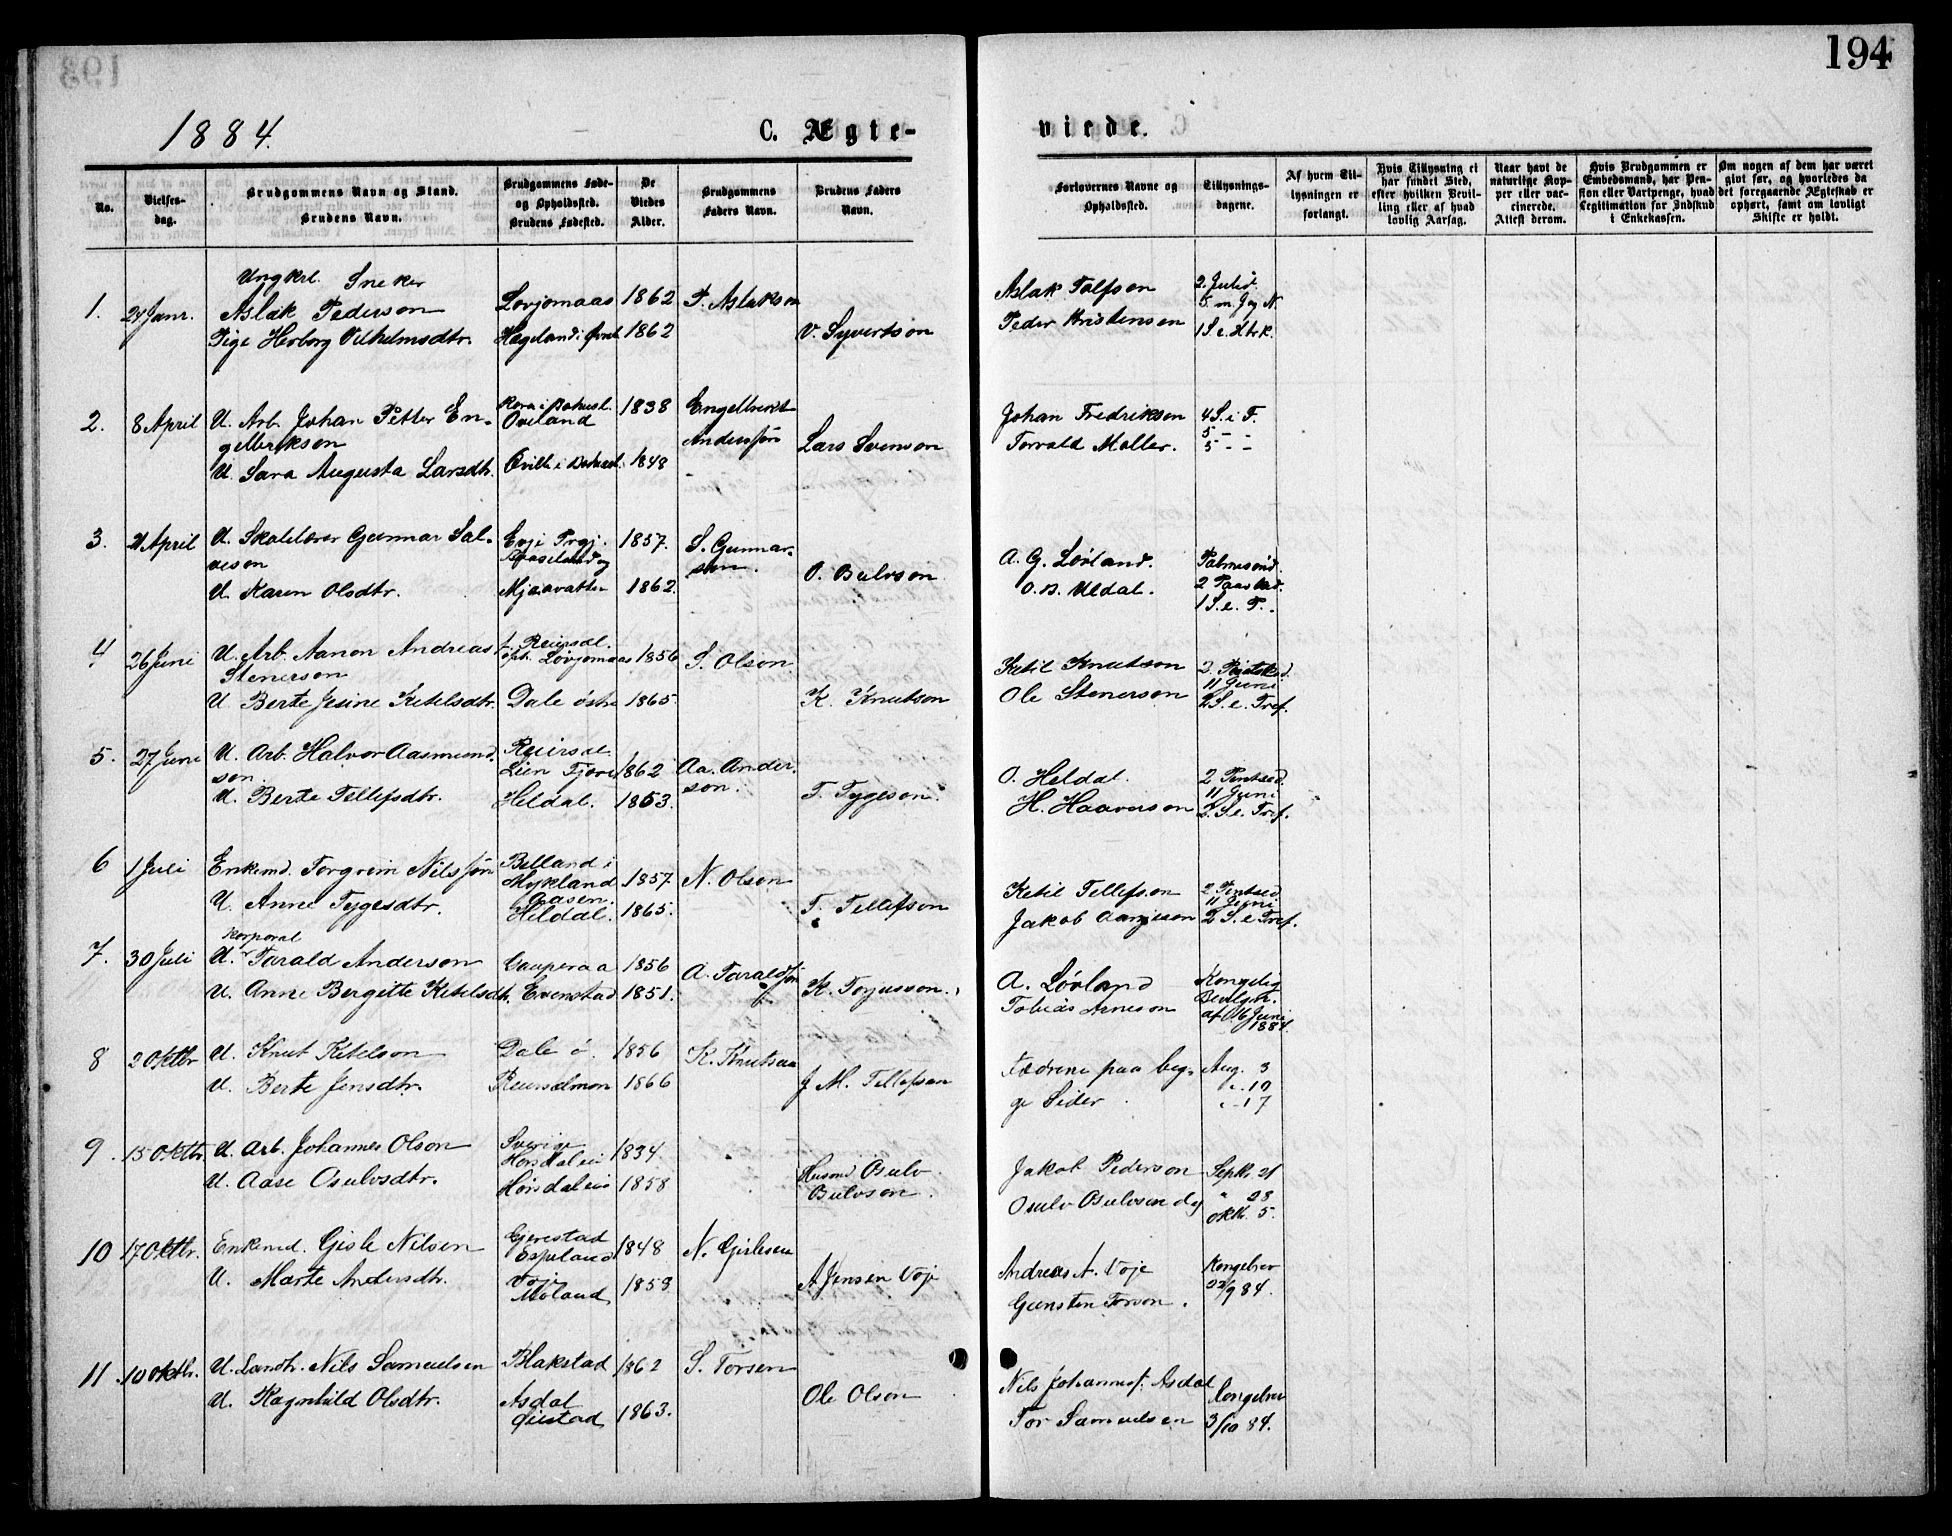 194
1884.
C. Ægte-
viede.
No.
Vielses-
dag.
Brudgommens Navn og Stand.
Brudens Navn.
Brudgommens Føde-
og Opholdssted.
Brudens Fødested.
De
Viedes
Alder.
Brudgommens
Faders Navn.
Brudens Faders
Navn.
Forlovernes Navne og
Opholdssted.
Tillysnings-
dagene.
Af hvem Til-
lysningen er
forlangt.
Hvis Tillysning ei
har fundet Sted,
efter hvilken Bevil-
ling eller af hvad
lovlig Aarsag.
Naar havt de
naturlige Kop-
per eller vac-
cinerede.
Attest derom.
Hvis Brudgommen er
Embedsmand, har Pen-
sion eller Vartpenge, hvad
Legitimation for Indskud
i Enkekassen.
Om nogen af dem har været
givt før, og hvorledes da
det foregaaende Ægteskab er
ophørt, samt om lovligt
Skifte er holdt.
1. 24 Janr.
Ungkrl. Sneker
Aslak Pederson
Pige Herborg Vilhelmsdtr.
Lovjomaas 1862
Hægeland i Øvreb 1862
P. Aslakson
V. Syvertson
Aslak Tolfson
Peder Kristensen
2. Juled.
S. m. J og N.
1 S. e. Htrk.
2. 8 April
U. Arb. Johan Petter En-
gelbrikson
U. Sara Augusta Larsdtr.
Oveland
1838
1848
Engelbrekt
Andersson
Lars Svenson
Johan Fredrikson
Torvald Møller.
4 S. i F.
5 - -
5 - -
3. 21 April
U. Skolelærer Gunnar Sal-
veson
U. Karen Olsdtr.
Evje Prgj.
Mjaavatten
1857.
1862.
S. Gunnar-
son.
O. Bulvson
A. G. Løvland.
O. B. Uldal.
Palmesønd.
2 Paaskd.
1 S. e. P.
4. 26 Juni
U. Arb. Aanon Andreas
Stenerson
U. Berte Jesine Ketelsdtr.
f. Reiersdl.
oph. Lovjomaas 1856
Dale østre 1865.
S. Olson
K. Knutson
Ketil Knutson
Ole Stenerson
2. Pintsed.
11 Juni
2 S. e. Tref.
5. 27 Juni
U. Arb. Halvor Aasmund-
son.
U. Berte Tellefsdtr.
Reiersdl
Lien 1862
Heldal. 1853.
Aa. Ander-
son.
T. Tygeson.
O. Heldal.
H. Haaverson
2 Pintsed.
11 Juni
2. S. e. Tref.
6 1 Juli
Enkemd. Torgrim Nilssøn
U. Anne Tygesdtr.
Belland i
Mykland
Aasen.
Heldal.
1857
1865.
N. Olson
T. Tellefson
Ketil Tellefson
Jakob Aanjeson
2 Pintsed
11 Juni
2 S. e Tref.
7. 30 Juli
Korporal
U. Tarald Anderson
U. Anne Bergitte Ketelsdtr.
Gauperaa 1856
Evenstad 1851.
A. Taraldsøn
K. Torjusson.
A. Løvland
Tobias Arneson
Kongelig
Bevilgn.
af 16 Juni
1884.
8 2 Oktbr
U. Knut Ketelson
U. Berte Jensdtr.
Dale ø. 1856
Reiersdlmon 1866
K. Knutson
J M. Tellefsen
Fædrene paa beg-
ge Sider
Aug. 3
" 10
" 17
9. 15 Oktbr.
U. Arb. Johannes Olson
U. Aase Osulvsdtr.
Sverige
Horsdalen 1834.
Horsdalen 1858
Husmd Osulv
Bulvson.
Jakob Pederson
Osulv Osulvsen
Septr. 21
" 28
Oktr. 5.
10 17 Oktbr.
Enkemd. Gisle Nilsen
U. Marte Andersdtr.
Gjerestad
Espeland
Voje
Moland
1848
1859
N. Gislesen
A Jensen Voje
Andreas A. Voje
Gunsten Torson.
Kongebrev
22/9 84.
11. 10 Oktbr.
U. Landh. Nils Samuelsen
U. Ragnhild Olsdtr.
Blakstad 1862
Asdal
Øiestad 1863.
S. Torsen
Ole Olson
Nils Johannesf. Asdal
Tor Samuelsen
Kongebrev
3/10 84.